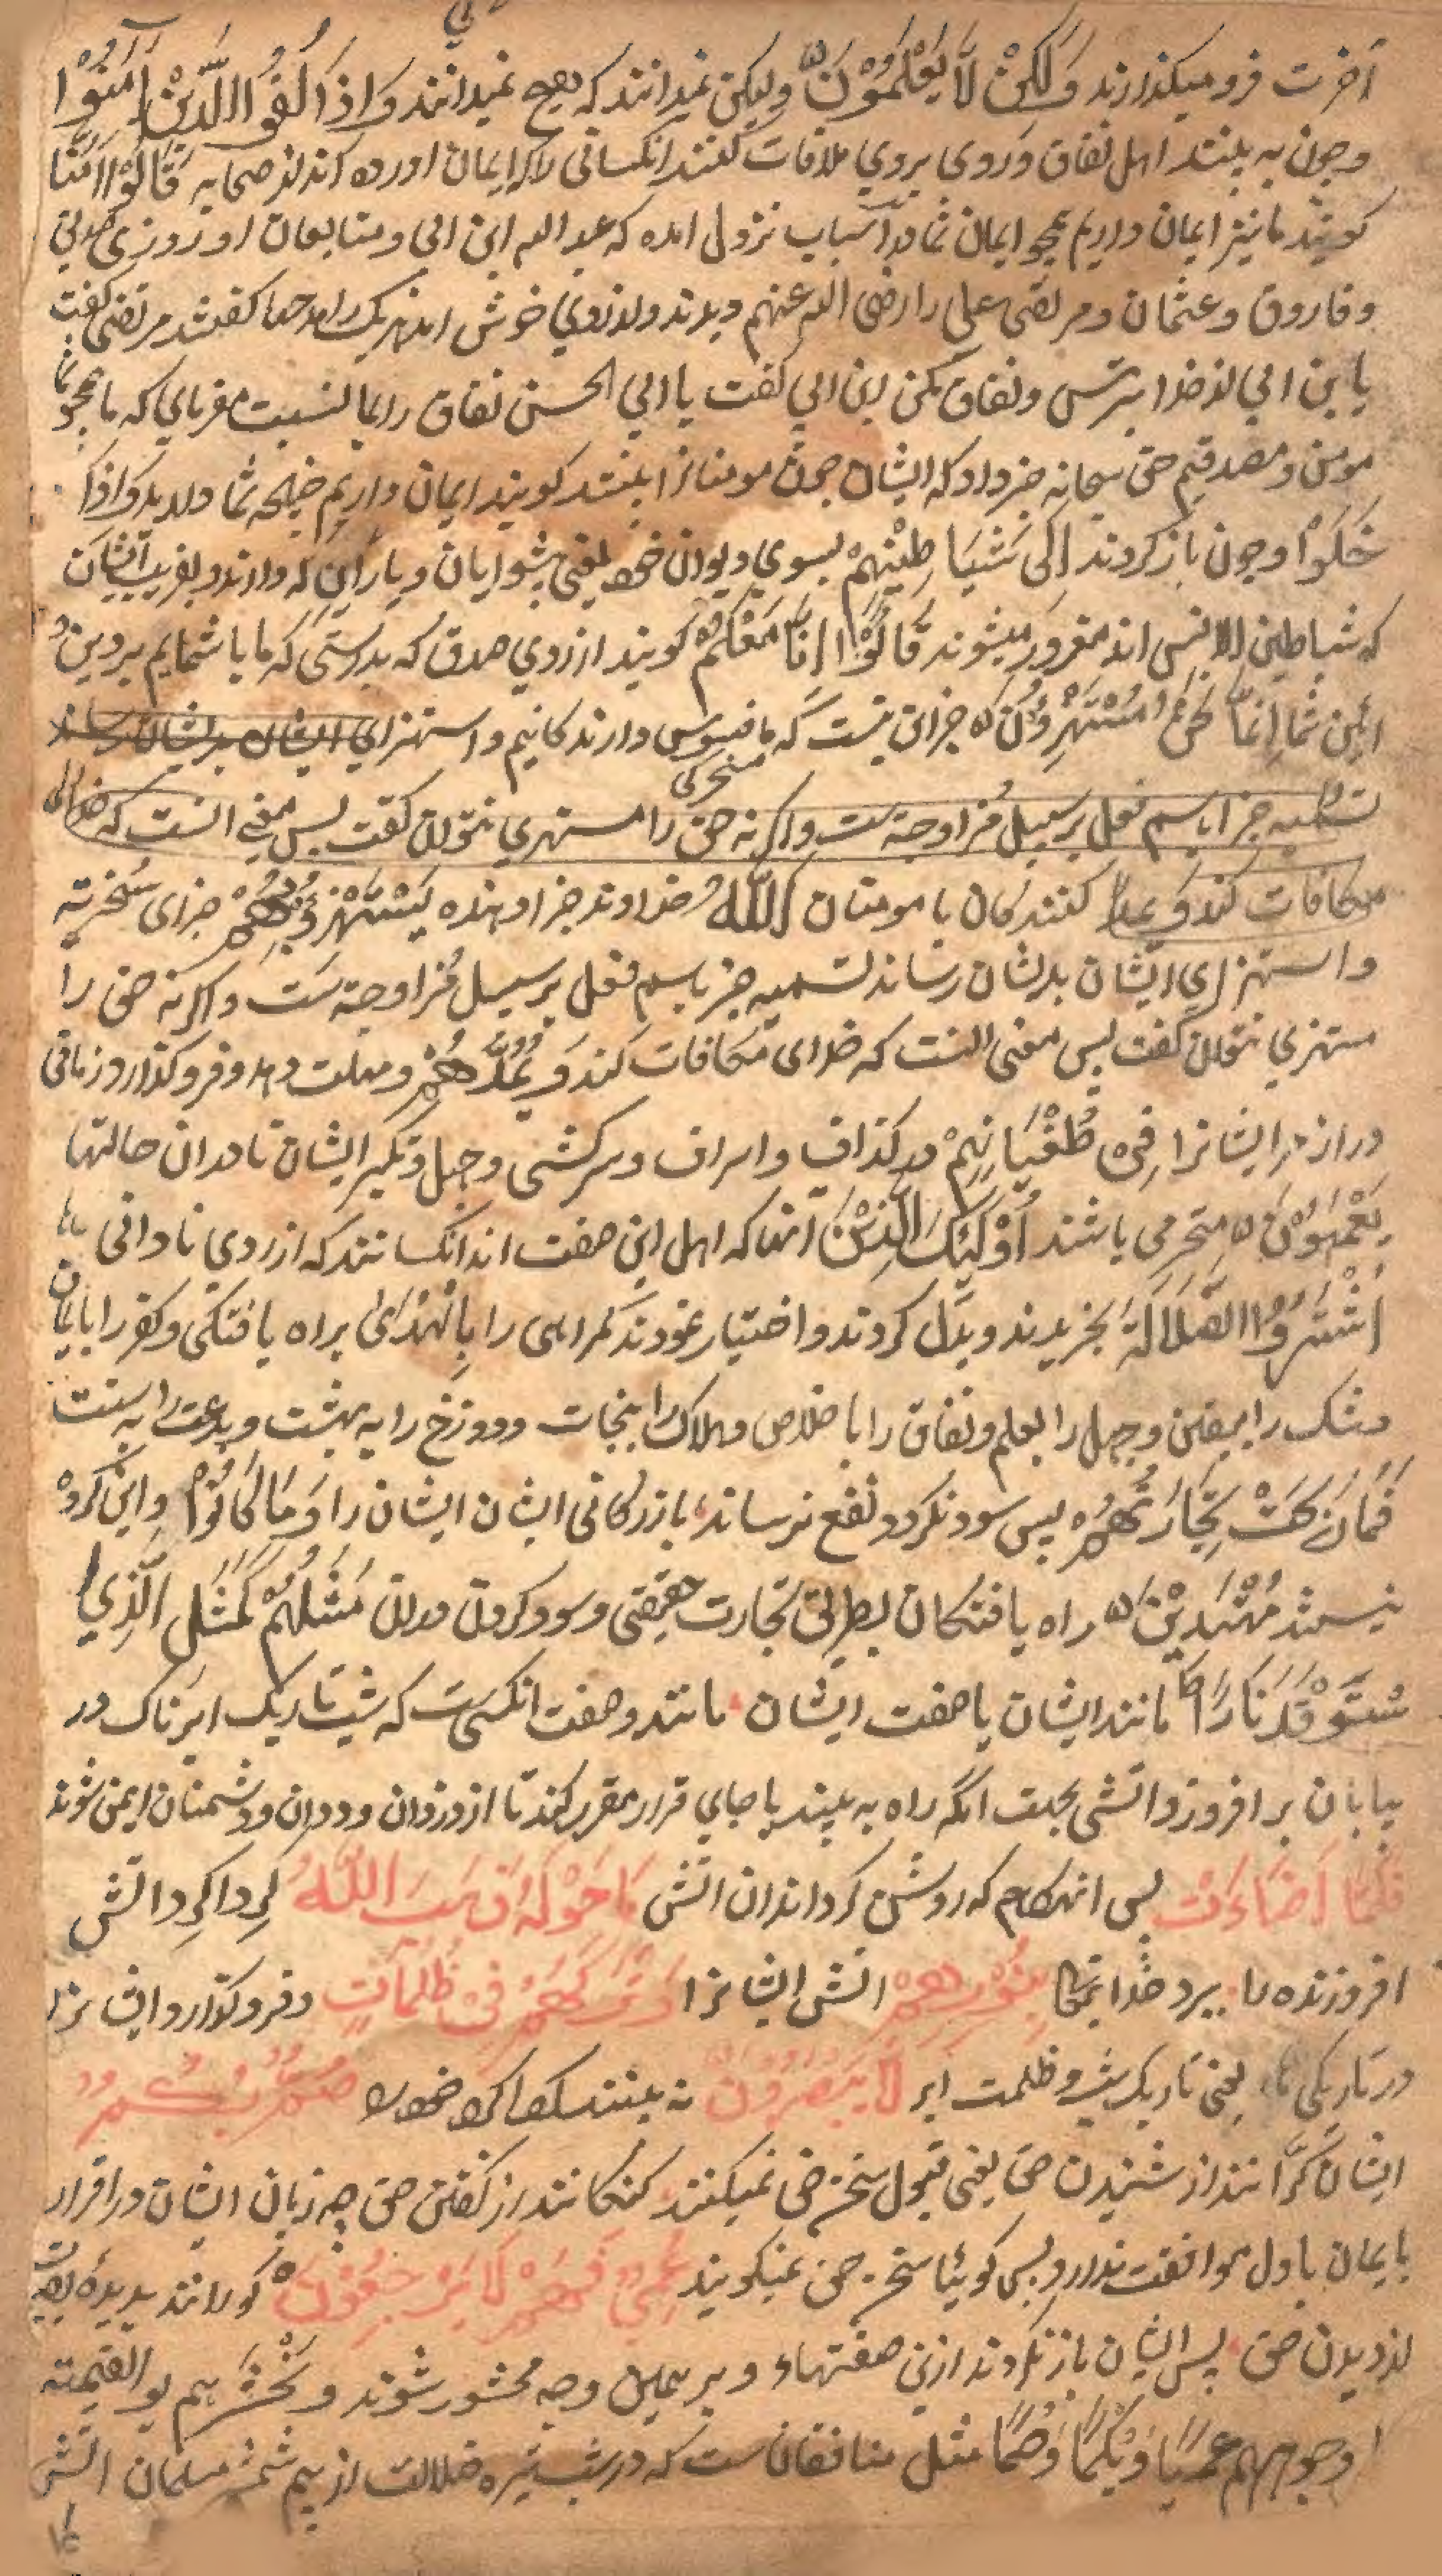 آخرت فرو میکذارند وَلَٰكِنْ لَّا يَعْلَمُوْنَ ولیکن نمیدانند که هیچ نمیدانند وَاِذَا لَقُوا الَّذِيْنَ اٰمَنُوْا
وچون به بینند اهل نفاق وروی بروی ملاقات کنند انکسانی را که ایمان اورده اند از صحابه قَالُوْا اٰمَنَّا
کویند ما نیز ایمان داریم همچو ایمان شما در اسباب نزول امده که عبد الله ابن ابی ومتابعان او روزی صدیق
وفاروق وعثمان ومرتضی علی را رضی الله عنهم دیدند واز روی خوش امد هریک را مدحها کفتند مرتضی کفت
یا بن ابی از خدا بترس ونفاق مکن ابن ابی کفت یا ابی الحسن نفاق را بما نسبت مفرمای که ما همچو شما
مومن ومصدقیم حق سبحانه خبر داد که ایشان چون مومنانرا بینند کویند ایمان داریم چنانچه شما دارید وَاِذَا
خَلَوْا وچون باز کردند اِلٰى شَيَاطِيْنِهِمْ بسوی دیوان خود یعنی پیشوایان ویاران که دارند وبفریب ایشان
که شیاطین الانس اند مغرور میشوند قَالُوْا اِنَّا مَعَكُمْ کویند از روی صدق که بدرستی که ما با شمایم بر دین و
ائین شما اِنَّمَا نَحْنُ مُسْتَهْزِؤُنَ جز این نیست که ما فسوس دارند کانیم واستهزای ایشان بدیشان رساند
تسمیه جزا باسم فعل بر سبیل مزاوجة ست واکر نه حق را مستهزی نتوان کفت پس معنی انست که خدای
مکافات کند و کنندکان با مومنان اَللّٰهُ خداوند جزا دهنده يَسْتَهْزِئُ بِهِمْ جزای سخریه
واستهزای ایشان بدیشان رساند تسمیه جز باسم فعل بر سبیل مزاوجة ست واکر نه حق را
مستهزی نتوان کفت پس معنی انست که خدای مکافات کند وَيَمُدُّهُمْ ومهلت دهد وفرو کذارد زمانی
دراز مر ایشانرا فِىْ طُغْيَانِهِمْ در کذاف واسراف وسرکشی وجهل وتکبر ایشان تا در ان حالتها
يَعْمَهُوْنَ متحیر می باشند اُولٰٓئِكَ الَّذِيْنَ انها که اهل این صفت اند انکسانند که از روی نادانی
اشْتَرَوُا الضَّلَالَةَ بخریدند وبدل کردند واختیار نمودند کمراهی را بِالْهُدٰى براه یافتکی وکفر را بایمان
وشک را بیقین وجهل را بعلم ونفاق را با خلاص وهلاک را بنجات ودوزخ را به بهشت وبدعت را به سنت
فَمَا رَبِحَتْ تِجَارَتُهُمْ پس سود نکرد ونفع نرساند بازرکانی ایشان ایشان را وَمَا كَانُوْا واین کروه
نیستند مُهْتَدِيْنَ راه یافتکان بطریق تجارت حقیقی وسود کردن دران مَثَلُهُمْ كَمَثَلِ الَّذِى ا
سْتَوْقَدَ نَارًا مانند ایشان یا صفت ایشان مانند وصفت انکسی ست که شب تاریک ابرناک در
بیابان بر افروزد اتشی بجهت انکه راه به بیند یا جای قرار مقرر کند تا از دزدان وددان ودشمنان ایمن شوند
فَلَمَّا اَضَاءَتْ پس انهنکام که روشن کرداند ان اتش مَا حَوْلَهٗ ذَهَبَ اللّٰهُ کرداکرد اتش
افروزنده را ببرد خدایتعالی بِنُوْرِهِمْ اتش ایشانرا وَتَرَكَهُمْ فِىْ ظُلُمَاتٍ وفرو کذارد ایشانرا
در تاریکی ها یعنی تاریک شب وظلمت ابر لَا يُبْصِرُوْنَ نه بینند خود را صُمٌّ بُكْمٌ
ایشان کرانند از شنیدن حق یعنی قبول سخن حق نمیکنند کنکانند از کفتن حق چه زبان ایشان در اقرار
بایمان با دل موافقت ندارد پس کوئیا سخن حق نمیکویند عُمْىٌ فَهُمْ لَا يَرْجِعُوْنَ کورانند بدیده بصیرت
از دیدن حق پس ایشان باز نکردند ازین صفتها وبر همین وجه محشور شوند ونحشرهم یوم القیمة
وجوههم عُمْيًا وَّبُكْمًا وَّصُمًّا مثل منافقان ست که در شب تیره ضلالت از بیم شمشیر مسلمانان اتش